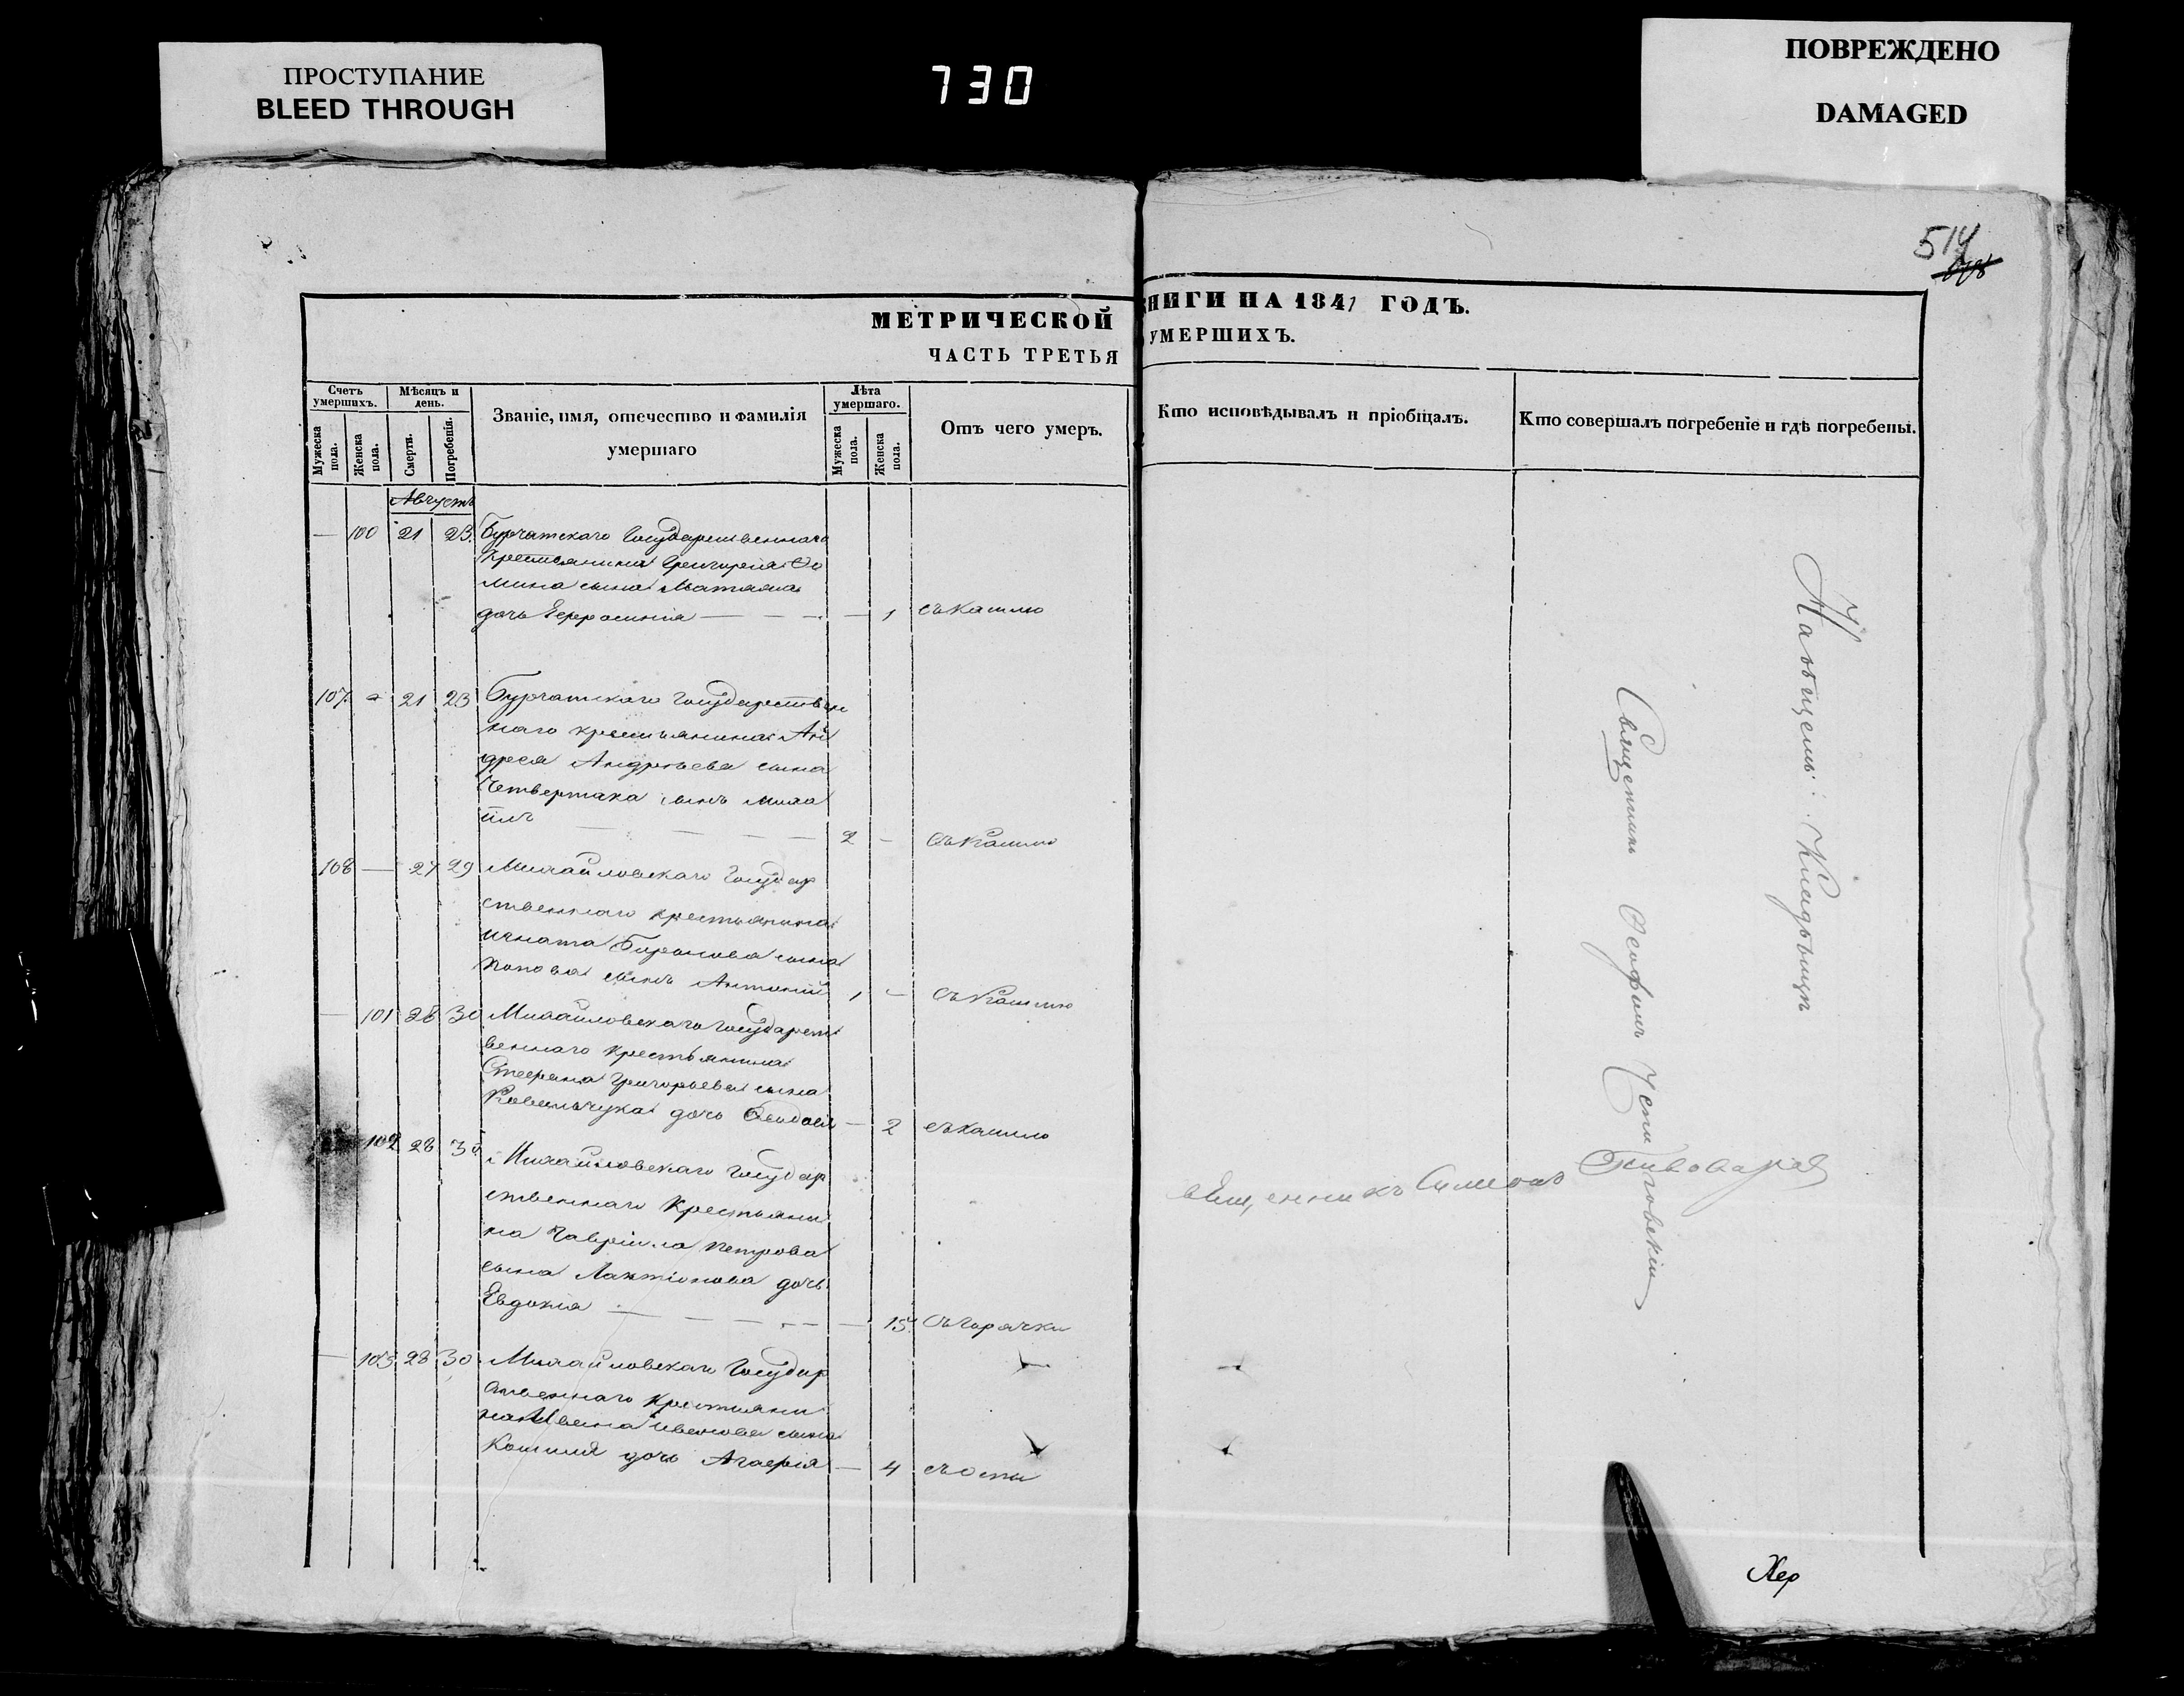 ПРОСТУПАНИЕ
BLEED THROUGH
730
ПОВРЕЖДЕНО
DAMAGED
514
МЕТРИЧЕСКОЙ КНИГИ НА 1841 ГОДЪ.
ЧАСТЬ ТРЕТЬЯ УМЕРШИХЪ.
Счетъ умершихъ.
Мужеска пола.
Женска пола.
Мѣсяцъ и день.
Смерти.
Погребенія.
Званіе, имя, отечество и фамилія
умершаго
Лѣта умершаго.
Мужеска пола.
Женска пола.
Отъ чего умеръ.
Кто исповѣдывалъ и пріобщалъ.
Кто совершалъ погребеніе и гдѣ погребены.
Августъ
— 100 21 23 Бурчатскаго Государственнаго
Крестьянина Григорія Фо
мина сына
дочь Ефросинія — 1 съ кашлю
107 21 23 Бурчатскаго Государствен
наго крестьянина Ан
дрея Андреева сына
Четвертака сынъ Миха
илъ 2 — Съ Кашлю
108 — 27 29 Михайловскаго Государ
ственнаго крестьянина
Игната сына
Попова сынъ Антоній 1 — Съ Кашлю
— 101 28 30 Михайловскаго Государст
веннаго крестьянина
Стефана Григорьева сына
Ковальчука дочь Феодосія — 2 съ кашлю
102 28 30 Михайловскаго Государ
ственнаго Крестьяни
на Гавріила Петрова
сына Лактіонова дочь
Евдокія — 15 Съ горячки
— 103 28 30 Михайловскаго Государ
ственнаго Крестьяни
на Ивана Иванова сына
Кошиля дочь Агафія — 4 съ оспи
священникъ Симеонъ Пивоваров
На общемъ Кладбищѣ
Священникъ Феофилъ
Хер